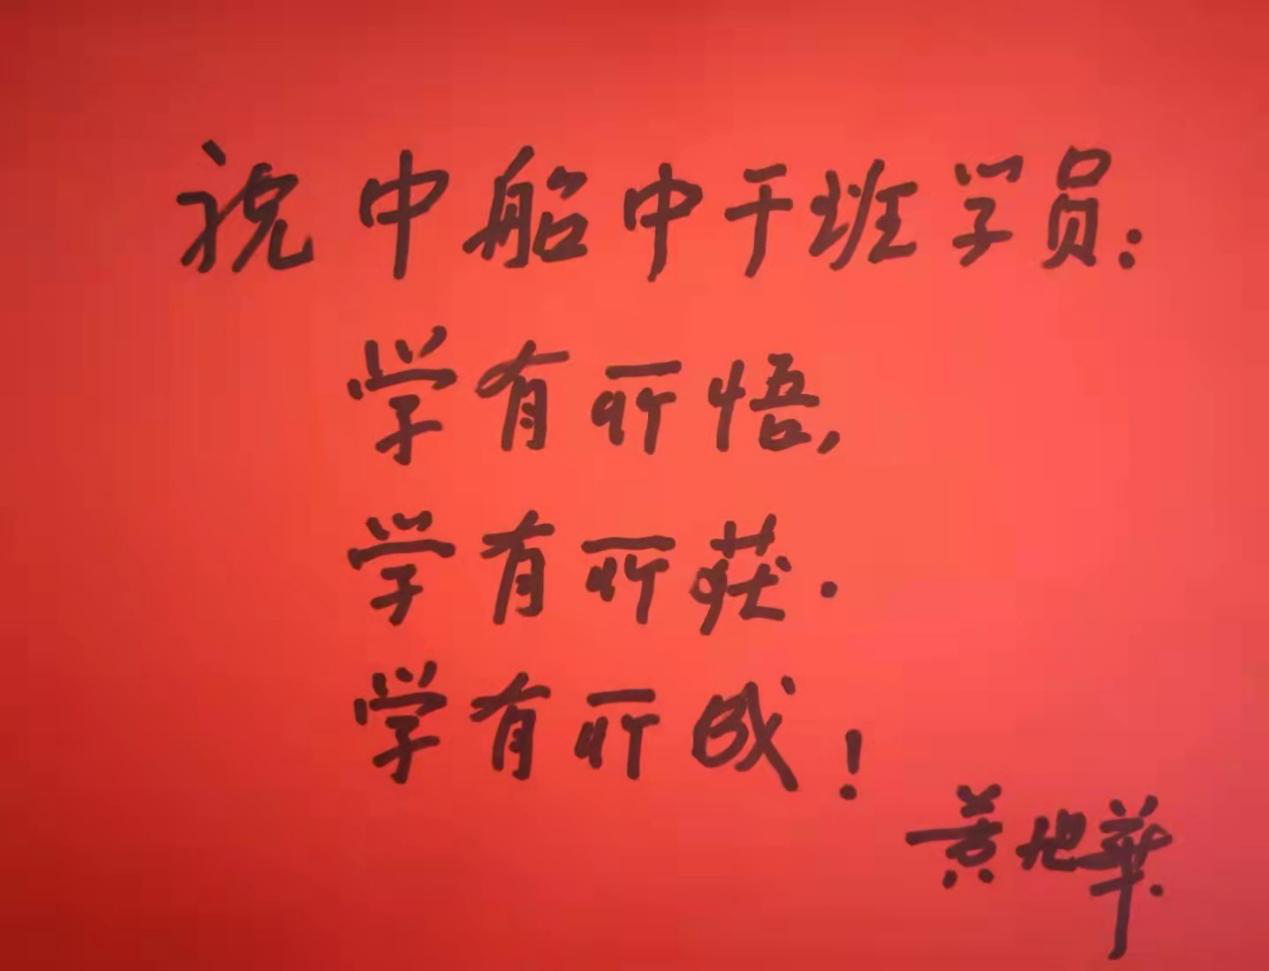 祝中船中干班学员:
学有所悟,
学有所获.
学有所成!
黄旭华